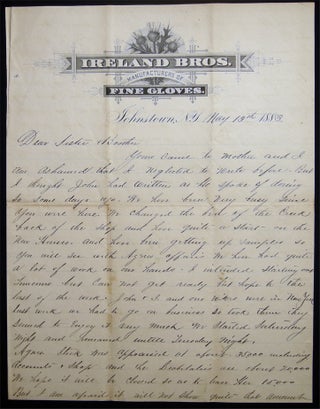 IRELAND BROS.
MANUFACTURERS OF
FINE GLOVES.
Johnstown, N.Y. May 13th 1888
Dear Sister
Yours came to Mother and I
am ashamed that I neglected to write before. But
I thought John had written as he spoke of doing
so some days ago. We have been very busy since
you were here. We changed the bed of the Creek
back of the shop and have quite a start on the
new House. and have been getting up samples so
you will see with Agnes affairs we have had quite
a lot of work on our hands. I intended starting on
but can not get ready but hope to the
last of the week. John & I and our wives were in New York
last week we had to go on business so took them they
seemed to enjoy it very much. We started Saturday
Night and remained untill Tuesday Night.
Agnes Stock was appraised at about including
accounts & Shop and the liabilities are about
We hope it will be closed so as to leave her
But I am afraid it will not show quite that amount